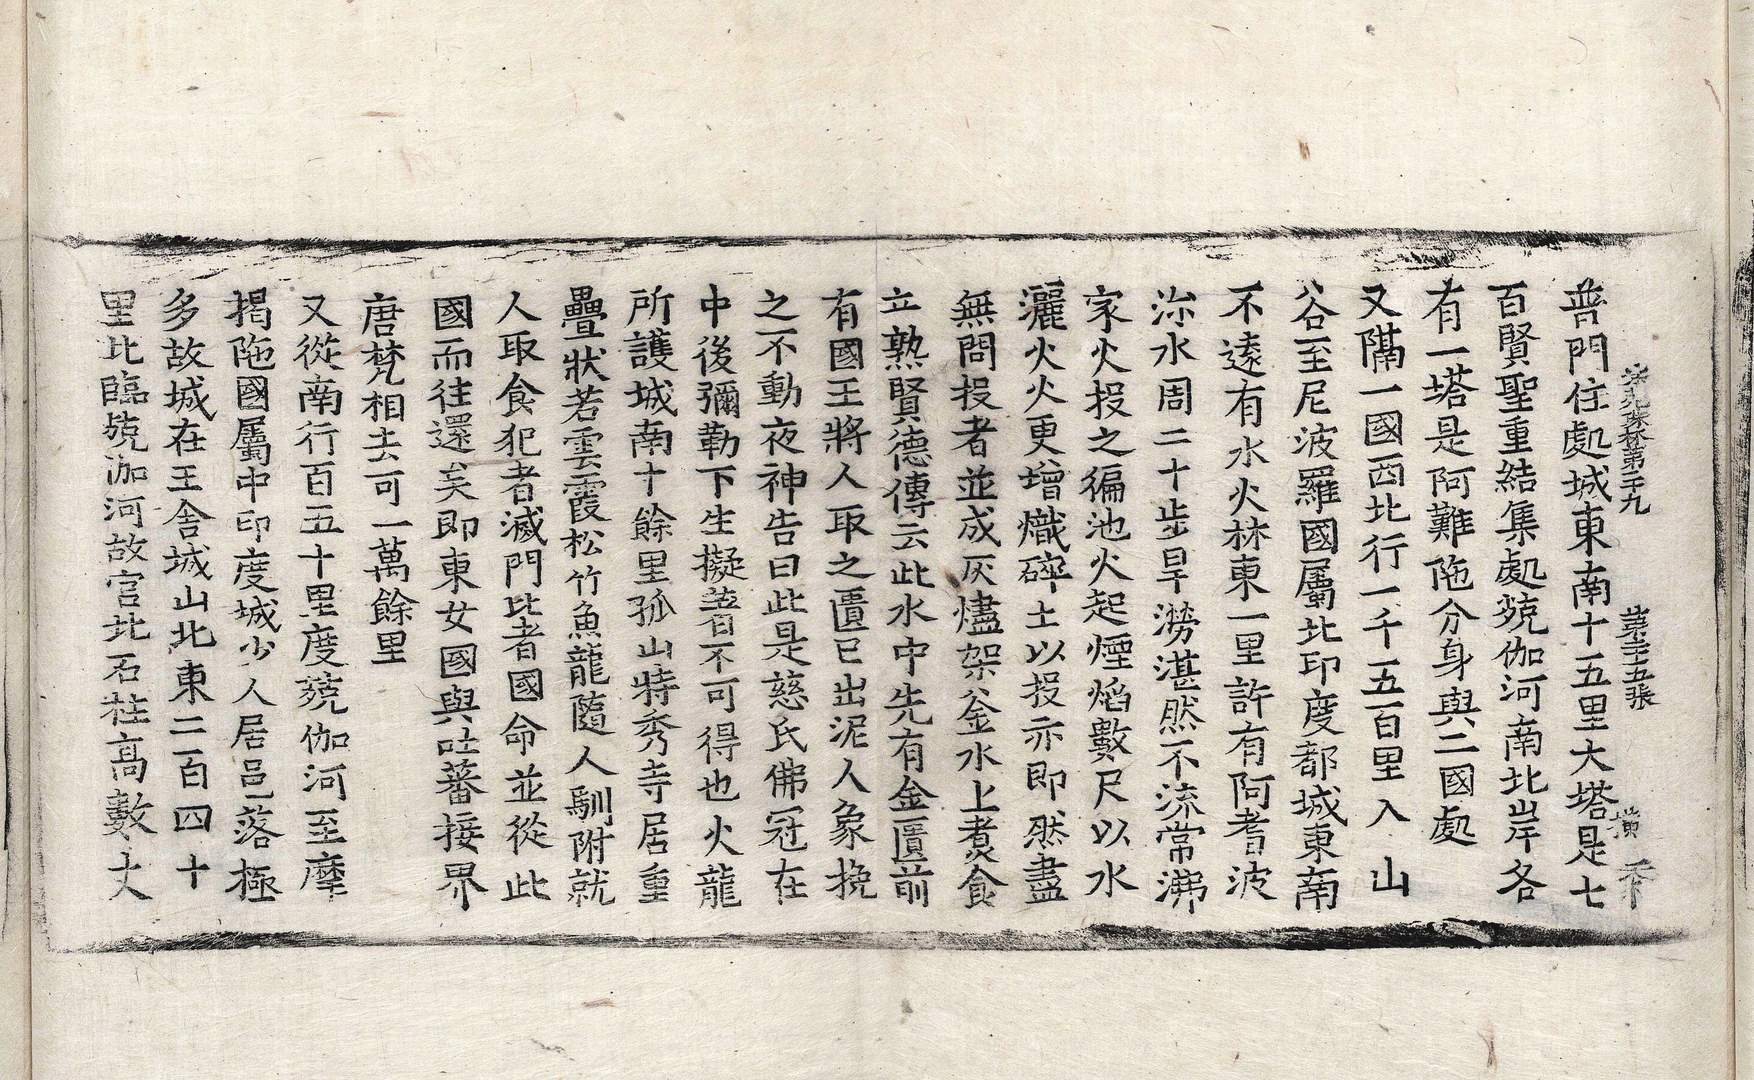 法苑珠林第二十九　第三十五張　橫
普門住處城東南十五里大塔是七
百賢聖重結集處殑伽河南北岸各
有一塔是阿難陁分身與二國處
又隔一國西北行一千五百里入山
谷至尼波羅國屬北印度都城東南
不遠有水火林東一里許有阿耆波
沵水周二十步旱澇湛然不流常沸
家火投之徧池火起煙焰數尺以水
灑火火更增熾碎土以投亦即然盡
無問投者並成灰燼架釜水上煑食
立熟賢德傳云此水中先有金匱前
有國王將人取之匱已出泥人象挽
之不動夜神告曰此是慈氏佛冠在
中後彌勒下生擬著不可得也火龍
所護城南十餘里孤山特秀寺居重
疊狀若雲霞松竹魚龍隨人馴附就
人取食犯者滅門比者國命並從此
國而往還矣即東女國與吐蕃接界
唐梵相去可一萬餘里
又從南行百五十里度殑伽河至摩
揭陁國屬中印度城少人居邑落極
多故城在王舍城山北東二百四十
里北臨殑伽河故宮北石柱高數丈